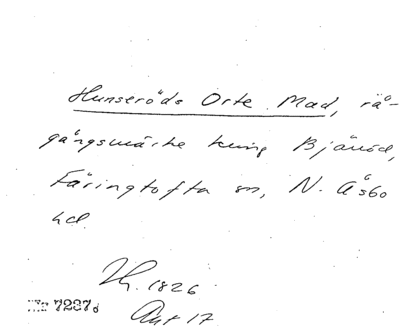 Hunseröds Orte Mad, rå-
gångsmärke kring Bjäröd,
Färingtofta sn, N. Åsbo
hd.
1826
Akt 17
7287